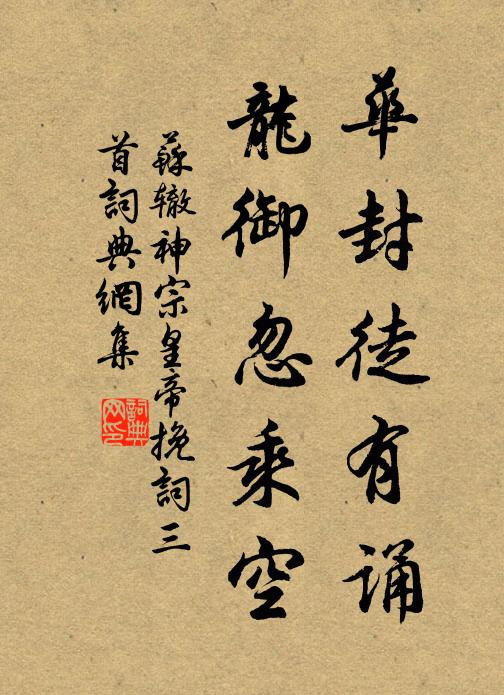 華封徒有誦
龍御忽乘空
蘇轍神宗皇帝挽詞三
首詞典網集
詞典
网印